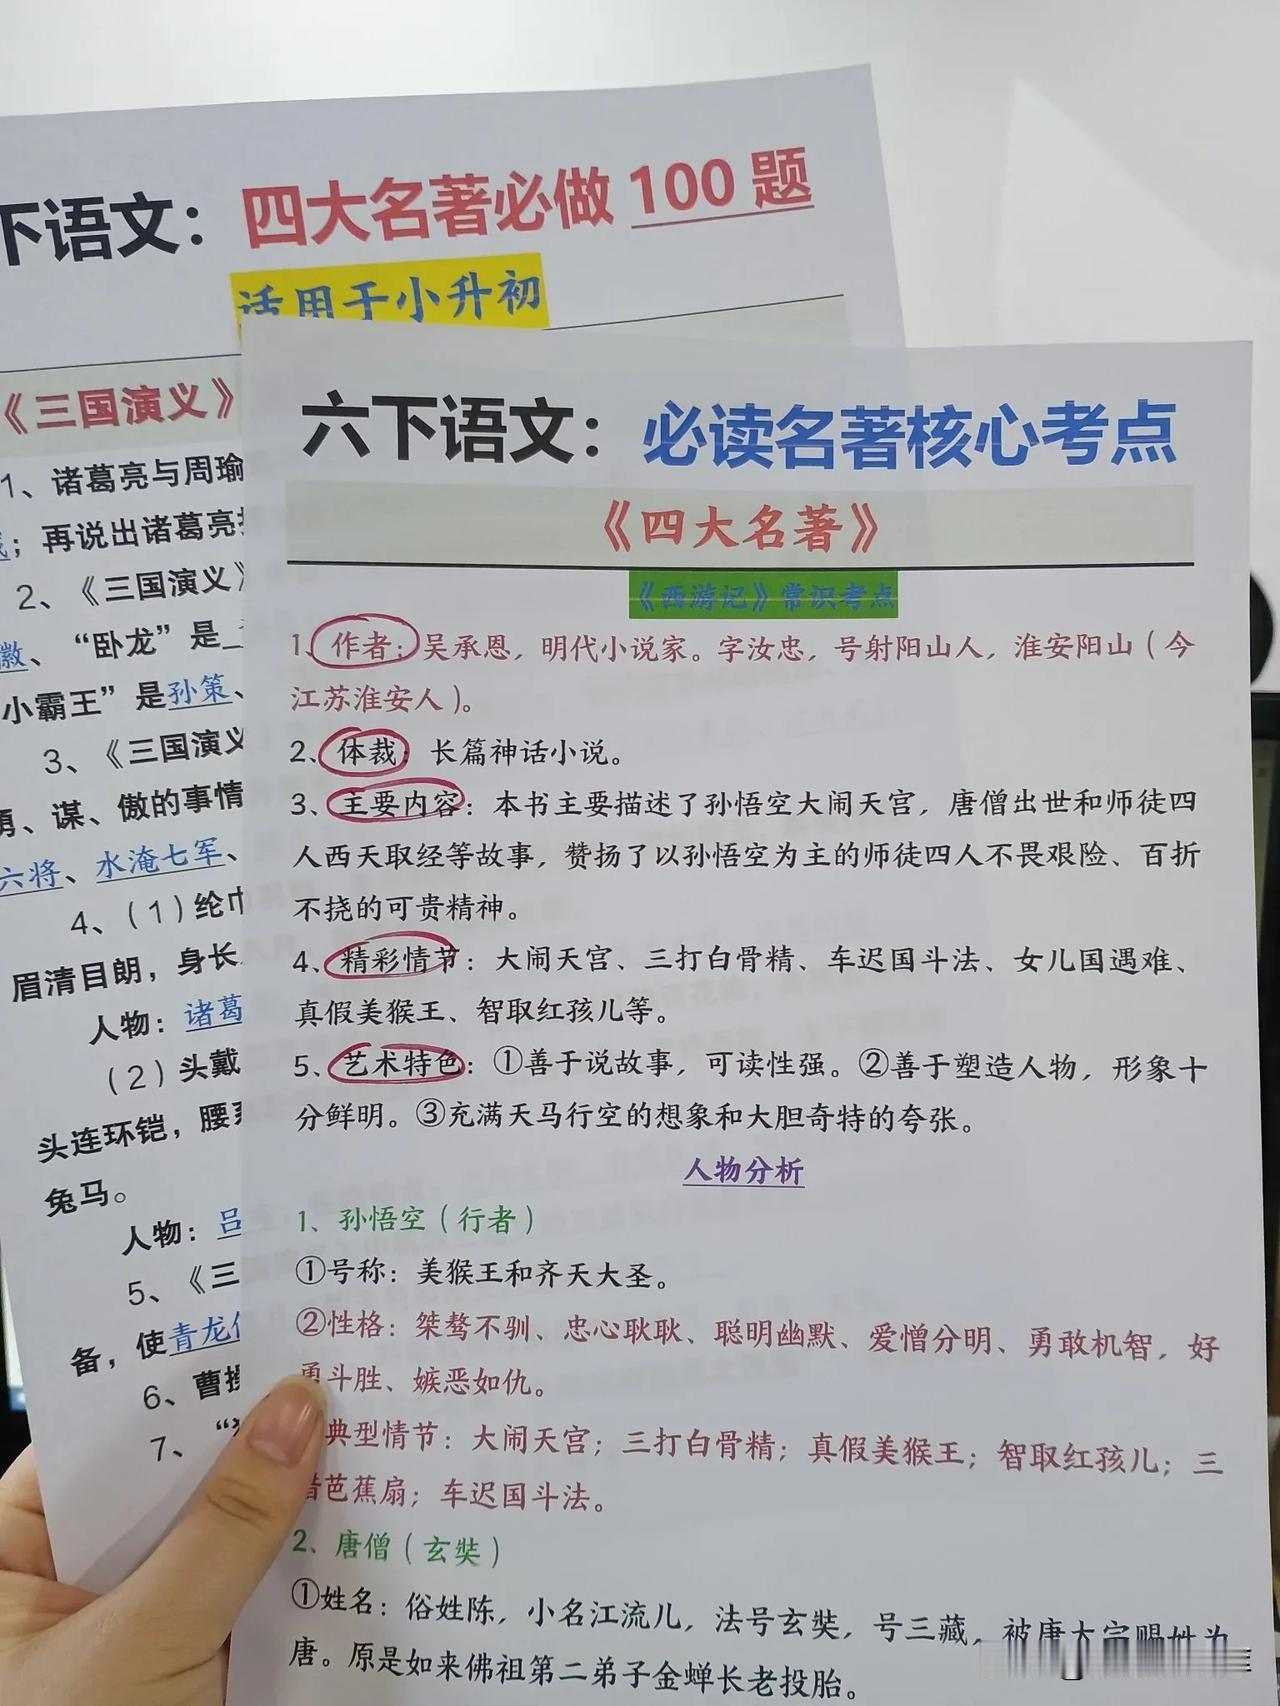 下语文：四大名著必做100题
适用于小升初
《三国演义》
1、诸葛亮与周瑜
；再说出诸葛亮
2、《三国演义》
徽、“卧龙”是
小霸王”是孙策、
3、《三国演义
勇、谋、傲的事情
六将、水淹七军、
4、（1）纶巾
眉清目朗，身长
人物：诸葛
（2）头戴
头连环铠，腰
兔马。
人物：吕
5、《三
备，使青龙
6、曹操
7、“
六下语文：必读名著核心考点
《四大名著》
《西游记》常识考点
1、作者：吴承恩，明代小说家。字汝忠，号射阳山人，淮安阳山（今
江苏淮安人）。
2、体裁：长篇神话小说。
3、主要内容：本书主要描述了孙悟空大闹天宫，唐僧出世和师徒四
人西天取经等故事，赞扬了以孙悟空为主的师徒四人不畏艰险、百折
不挠的可贵精神。
4、精彩情节：大闹天宫、三打白骨精、车迟国斗法、女儿国遇难、
真假美猴王、智取红孩儿等。
5、艺术特色：①善于说故事，可读性强。②善于塑造人物，形象十
分鲜明。③充满天马行空的想象和大胆奇特的夸张。
人物分析
1、孙悟空（行者）
①号称：美猴王和齐天大圣。
②性格：桀骜不驯、忠心耿耿、聪明幽默、爱憎分明、勇敢机智，好
勇斗胜、嫉恶如仇。
典型情节：大闹天宫；三打白骨精；真假美猴王；智取红孩儿；三
借芭蕉扇；车迟国斗法。
2、唐僧（玄奘）
①姓名：俗姓陈，小名江流儿，法号玄奘，号三藏，被唐太宗赐姓为
唐。原是如来佛祖第二弟子金蝉长老投胎。